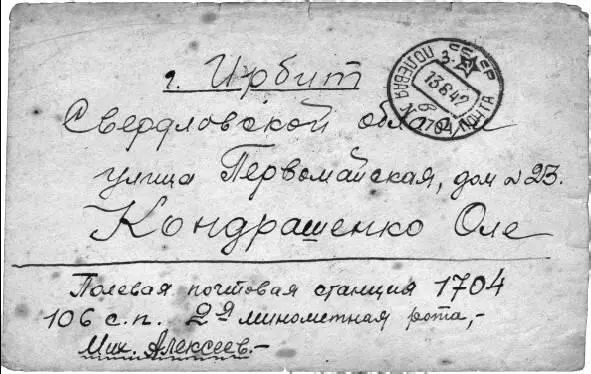 г. Ирбит
Свердловской области
улица Первомайская, дом № 23.
Кондрашенко Оле
Полевая почтовая станция 1704
106 с.п. 2я минометная рота,-
Мих. Алексеев.-
СССР
ПОЛЕВАЯ ПОЧТА
13 6 42
1704